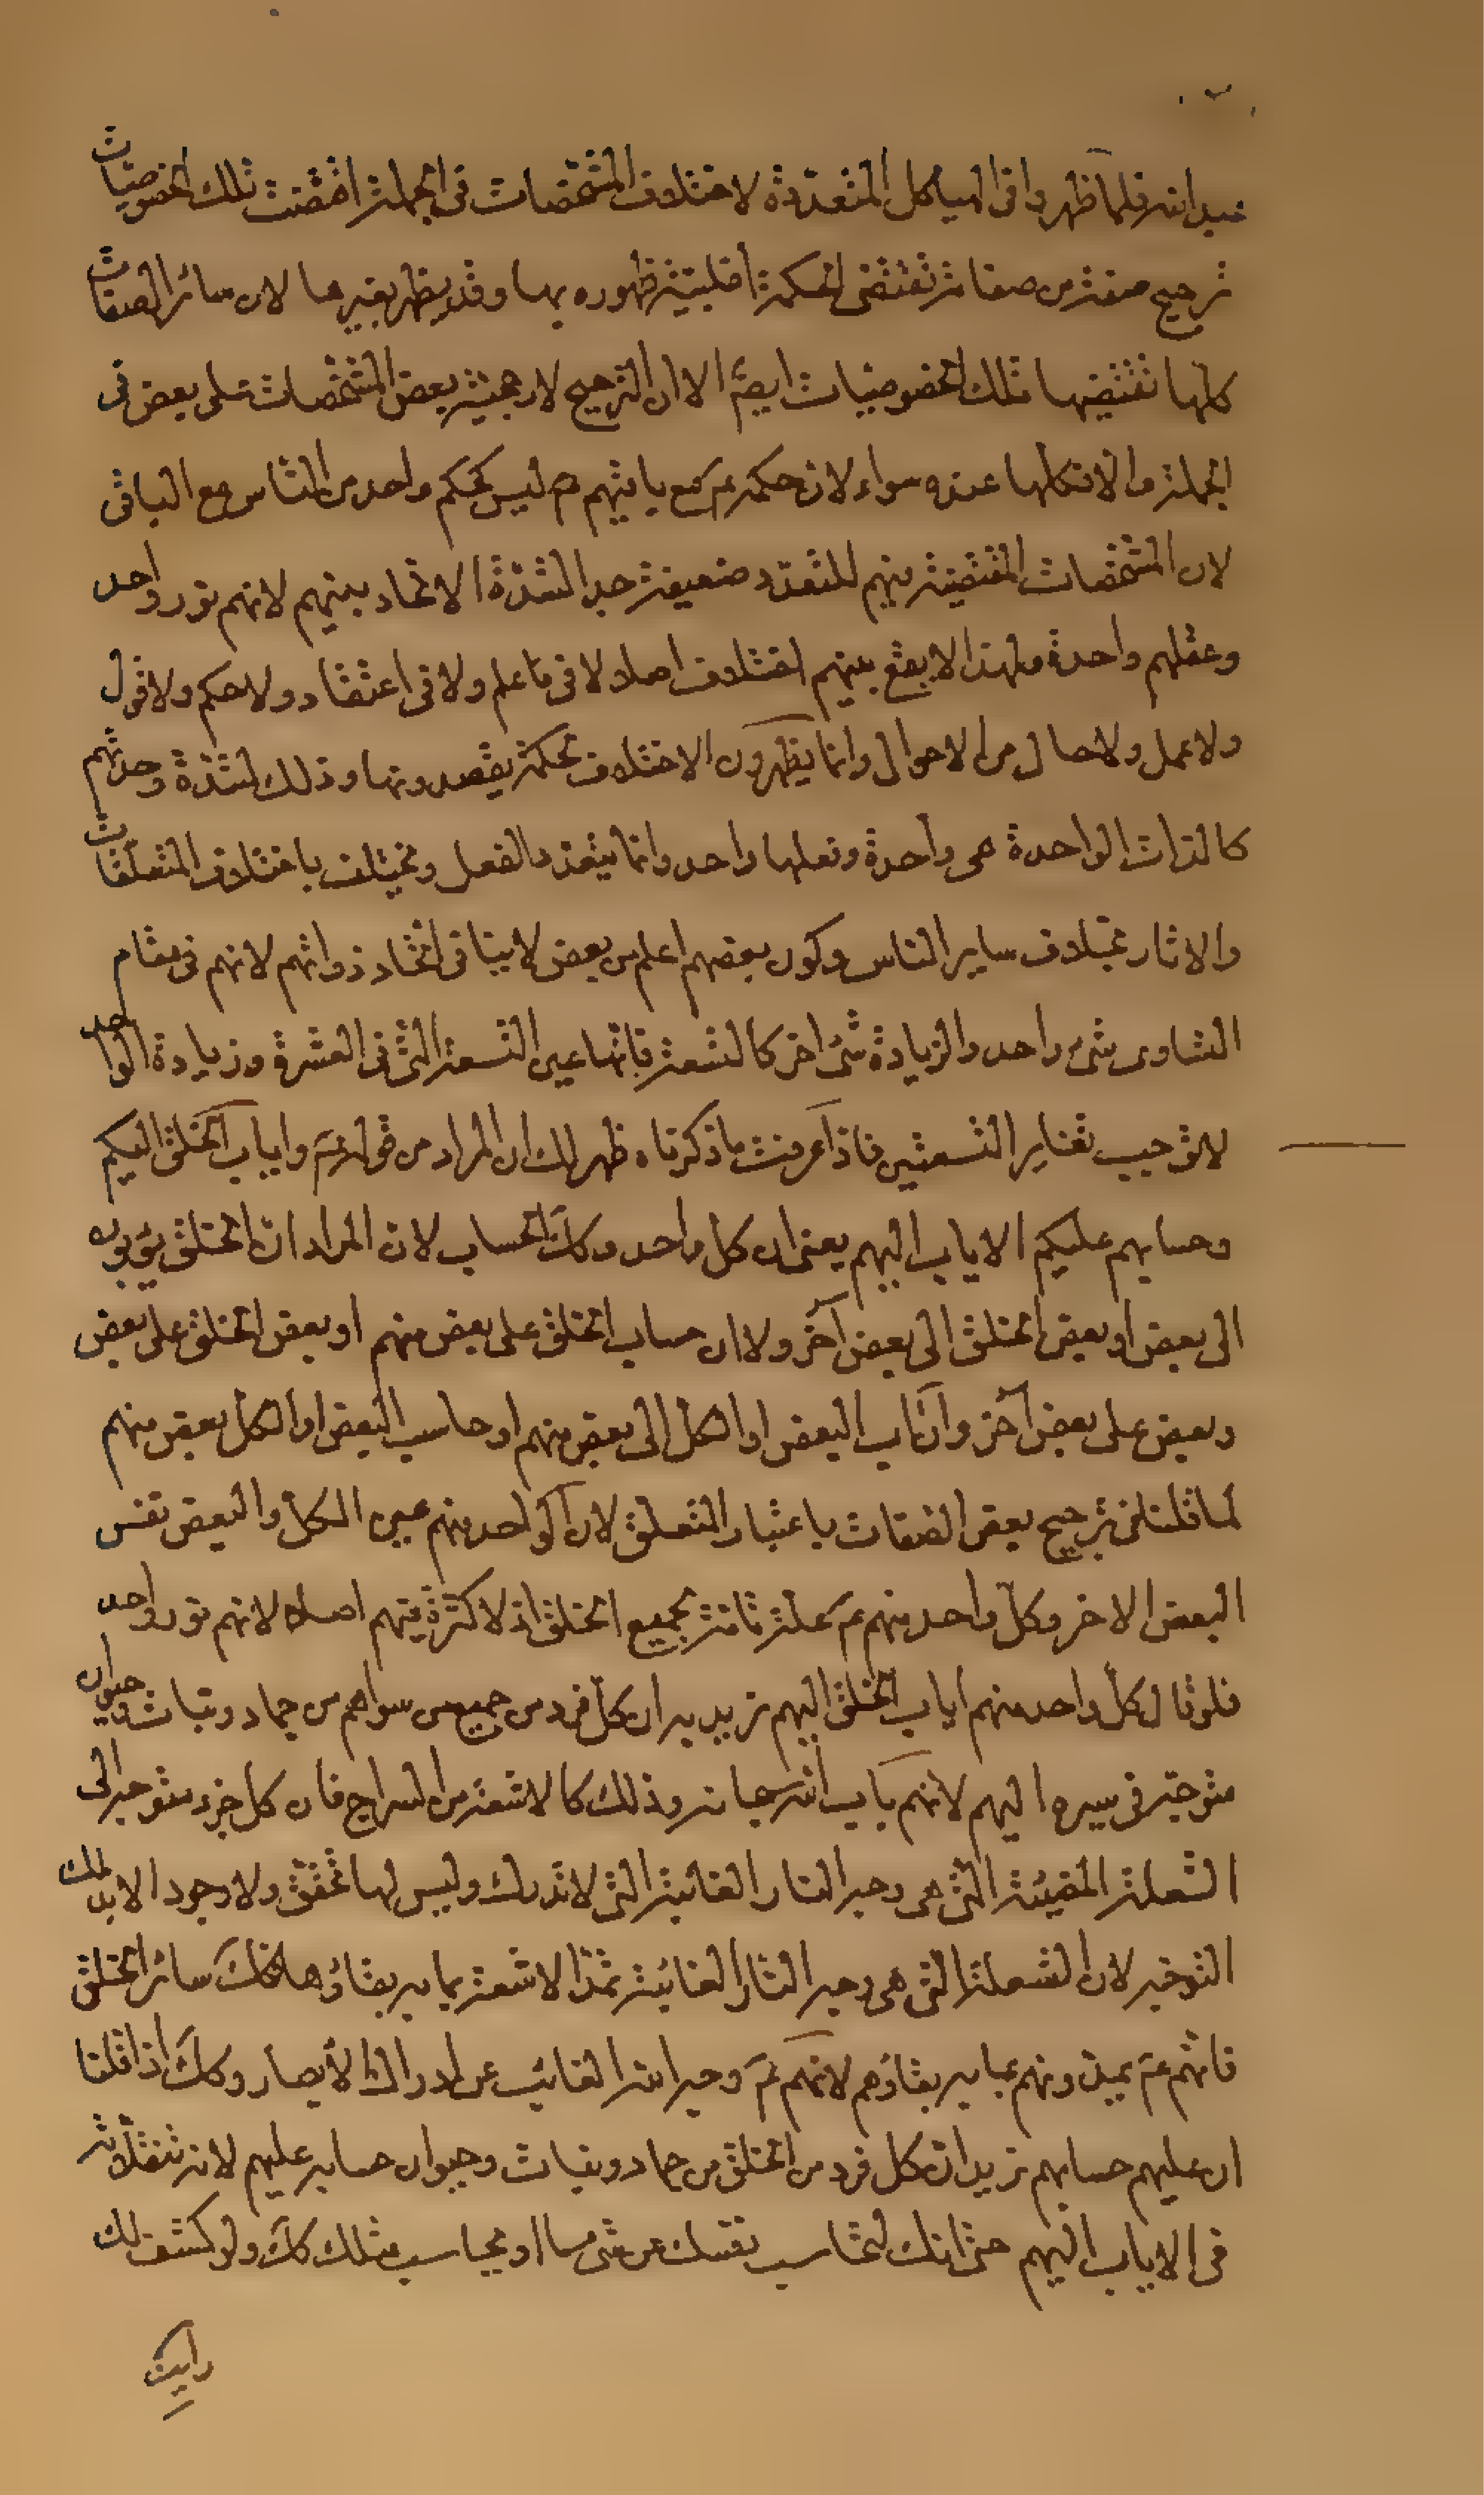 عبد الله فلما ظهروا في الهياكل المتعددة لاختلاف المشخصات في الجملة اقتضت تلك الخصوصيات
ترجيح صفة من صفاته تقتضي الحكمة اغلبية ظهوره بها وقد يظهر بغيرها لان سائر الصفات
كلها تقتضيها تلك الخصوصيات ايضا الا ان الترجيح لارجحية بعض المشخصات على بعض في
الجملة والا فكلها عنده سواء لان حكمه ع مع باقيهم ع ليس كحكم واحد من الناس مع الباقي
لان المشخصات المقتضية منهم للتعدد ضعيفة جدا لشدة الاتحاد بينهم لانهم نور واحد
وعقلهم واحدة ولهذا لا يقع بينهم اختلاف اصلا لا في ما علم ولا في اعتقاد ولا حكم ولا قول
ولا عمل ولا حال من الاحوال وانما يظهرون الاختلاف لحكمة يقصدونها وذلك لشدة وحدتهم
كالذات الواحدة هي واحدة وفعلها واحد وانما يتعدد الفعل ويختلف باختلاف المتعلقات
والاثار بخلاف ساير الناس وكون بعضهم اعلم من بعض لا ينافي اتحاد ذواتهم لانهم في مقام
التساوي شيء واحد والزيادة شيء اخر كالتسعة فانها عين التسعة التي في العشرة وزيادة الواحد
لا توجب تغاير التسعتين فاذا عرفت ما ذكرناه ظهر لك ان المراد من قوله ع واياب الخلق اليكم
وحسابهم عليكم الاياب اليهم يعني ان كل واحد وكك الحساب لان المراد ان الخلق يؤبون
الى بعض او بعض الخلق الى بعض آخر ولا ان حساب الخلق على بعض منهم او بعض الخلق على بعض
وبعض على بعض آخر وان آب البعض او الكل الى بعض منهم او حاسب البعض او الكل بعض منهم
لما قلنا من ترجيح بعض الصفات باعتبار التعلق لان الواحد منهم عين الكل والبعض نفس
البعض الاخر وكل واحد منهم ع علة تامة لجميع الخلق اذ لا كثرة فيهم اصلا لانهم نور واحد
فلو قال كل واحد منهم اياب الخلق اليهم نريد به ان كل فرد من جميع من سواهم من جماد ونبات وحيوان
متوجه في سيره اليهم لانهم باب الله سبحانه وذلك كالاشعة من السراج فان كل جزء متوجه الى
الشعلة المضيئة التي هي وجه النار الغائبة التي لا تدرك وليس لها تحقق ولا وجود الا بذلك
التوجه لان الشعلة التي هي وجه النار الغائبة تمد الاشعة بما به بقاؤها فكك سائر الخلق
فانهم ع يمدونهم بما به بقاؤهم لانهم ع وجه الله الغائب عن ادراك الابصار وكك اذا قلنا
ان عليهم حسابهم نريد ان كل فرد من الخلق من جماد ونبات وحيوان حسابه عليهم لانه
في الاياب اليهم حتى انك لتحاسب نفسك عن شيء ما او يحاسب مثلك كك ولو كشف لك
رايت